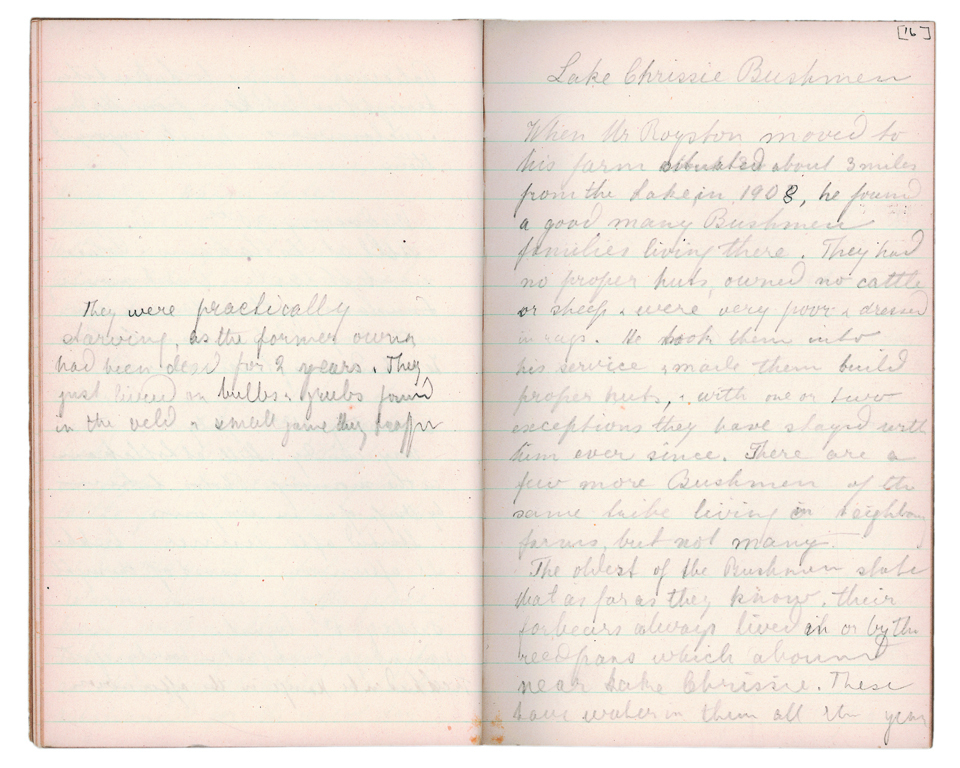 They were practically
starving, as the former owner
had been dead for 2 years. They
just lived on bulbs & grubs found
in the veld & small game they
[16]
Lake Chrissie Bushmen
When Mr Royston moved to
his farm situated about 3 miles
from the Lake in 1908, he found
a good many Bushmen
families living there. They had
no proper huts, owned no cattle
or sheep & were very poor & dressed
in rags. He took them into
his service & made them build
proper huts, & with one or two
exceptions they have stayed with
him ever since. There are a
few more Bushmen of the
same tribe living in
farms, but not many.
The oldest of the Bushmen state
that as far as they know, their
forbears always lived in or by the
reed pans which abound
near Lake Chrissie. These
have water in them all the year